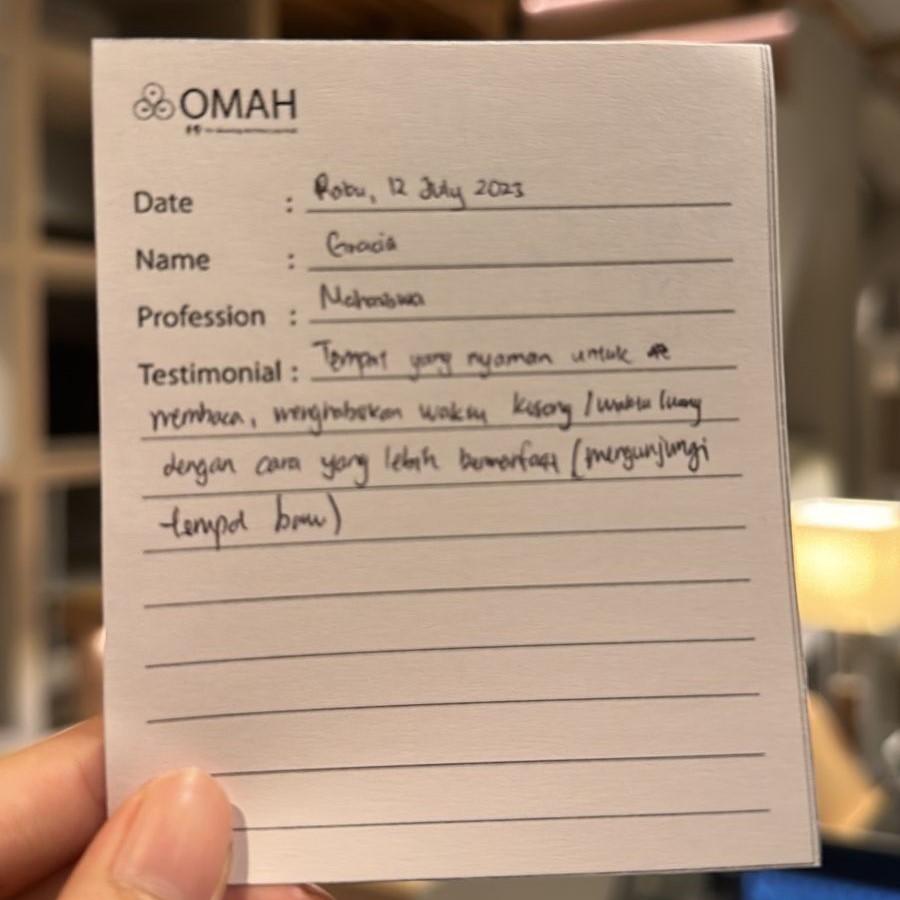 OMAH
Date : Rabu, 12 July 2023
Name : Gracia
Profession : Mahasiswa
Testimonial : Tempat yang nyaman untuk
membaca, menghabiskan waktu kosong / waktu luang
dengan cara yang lebih bermanfaat (mengunjungi
tempat baru)